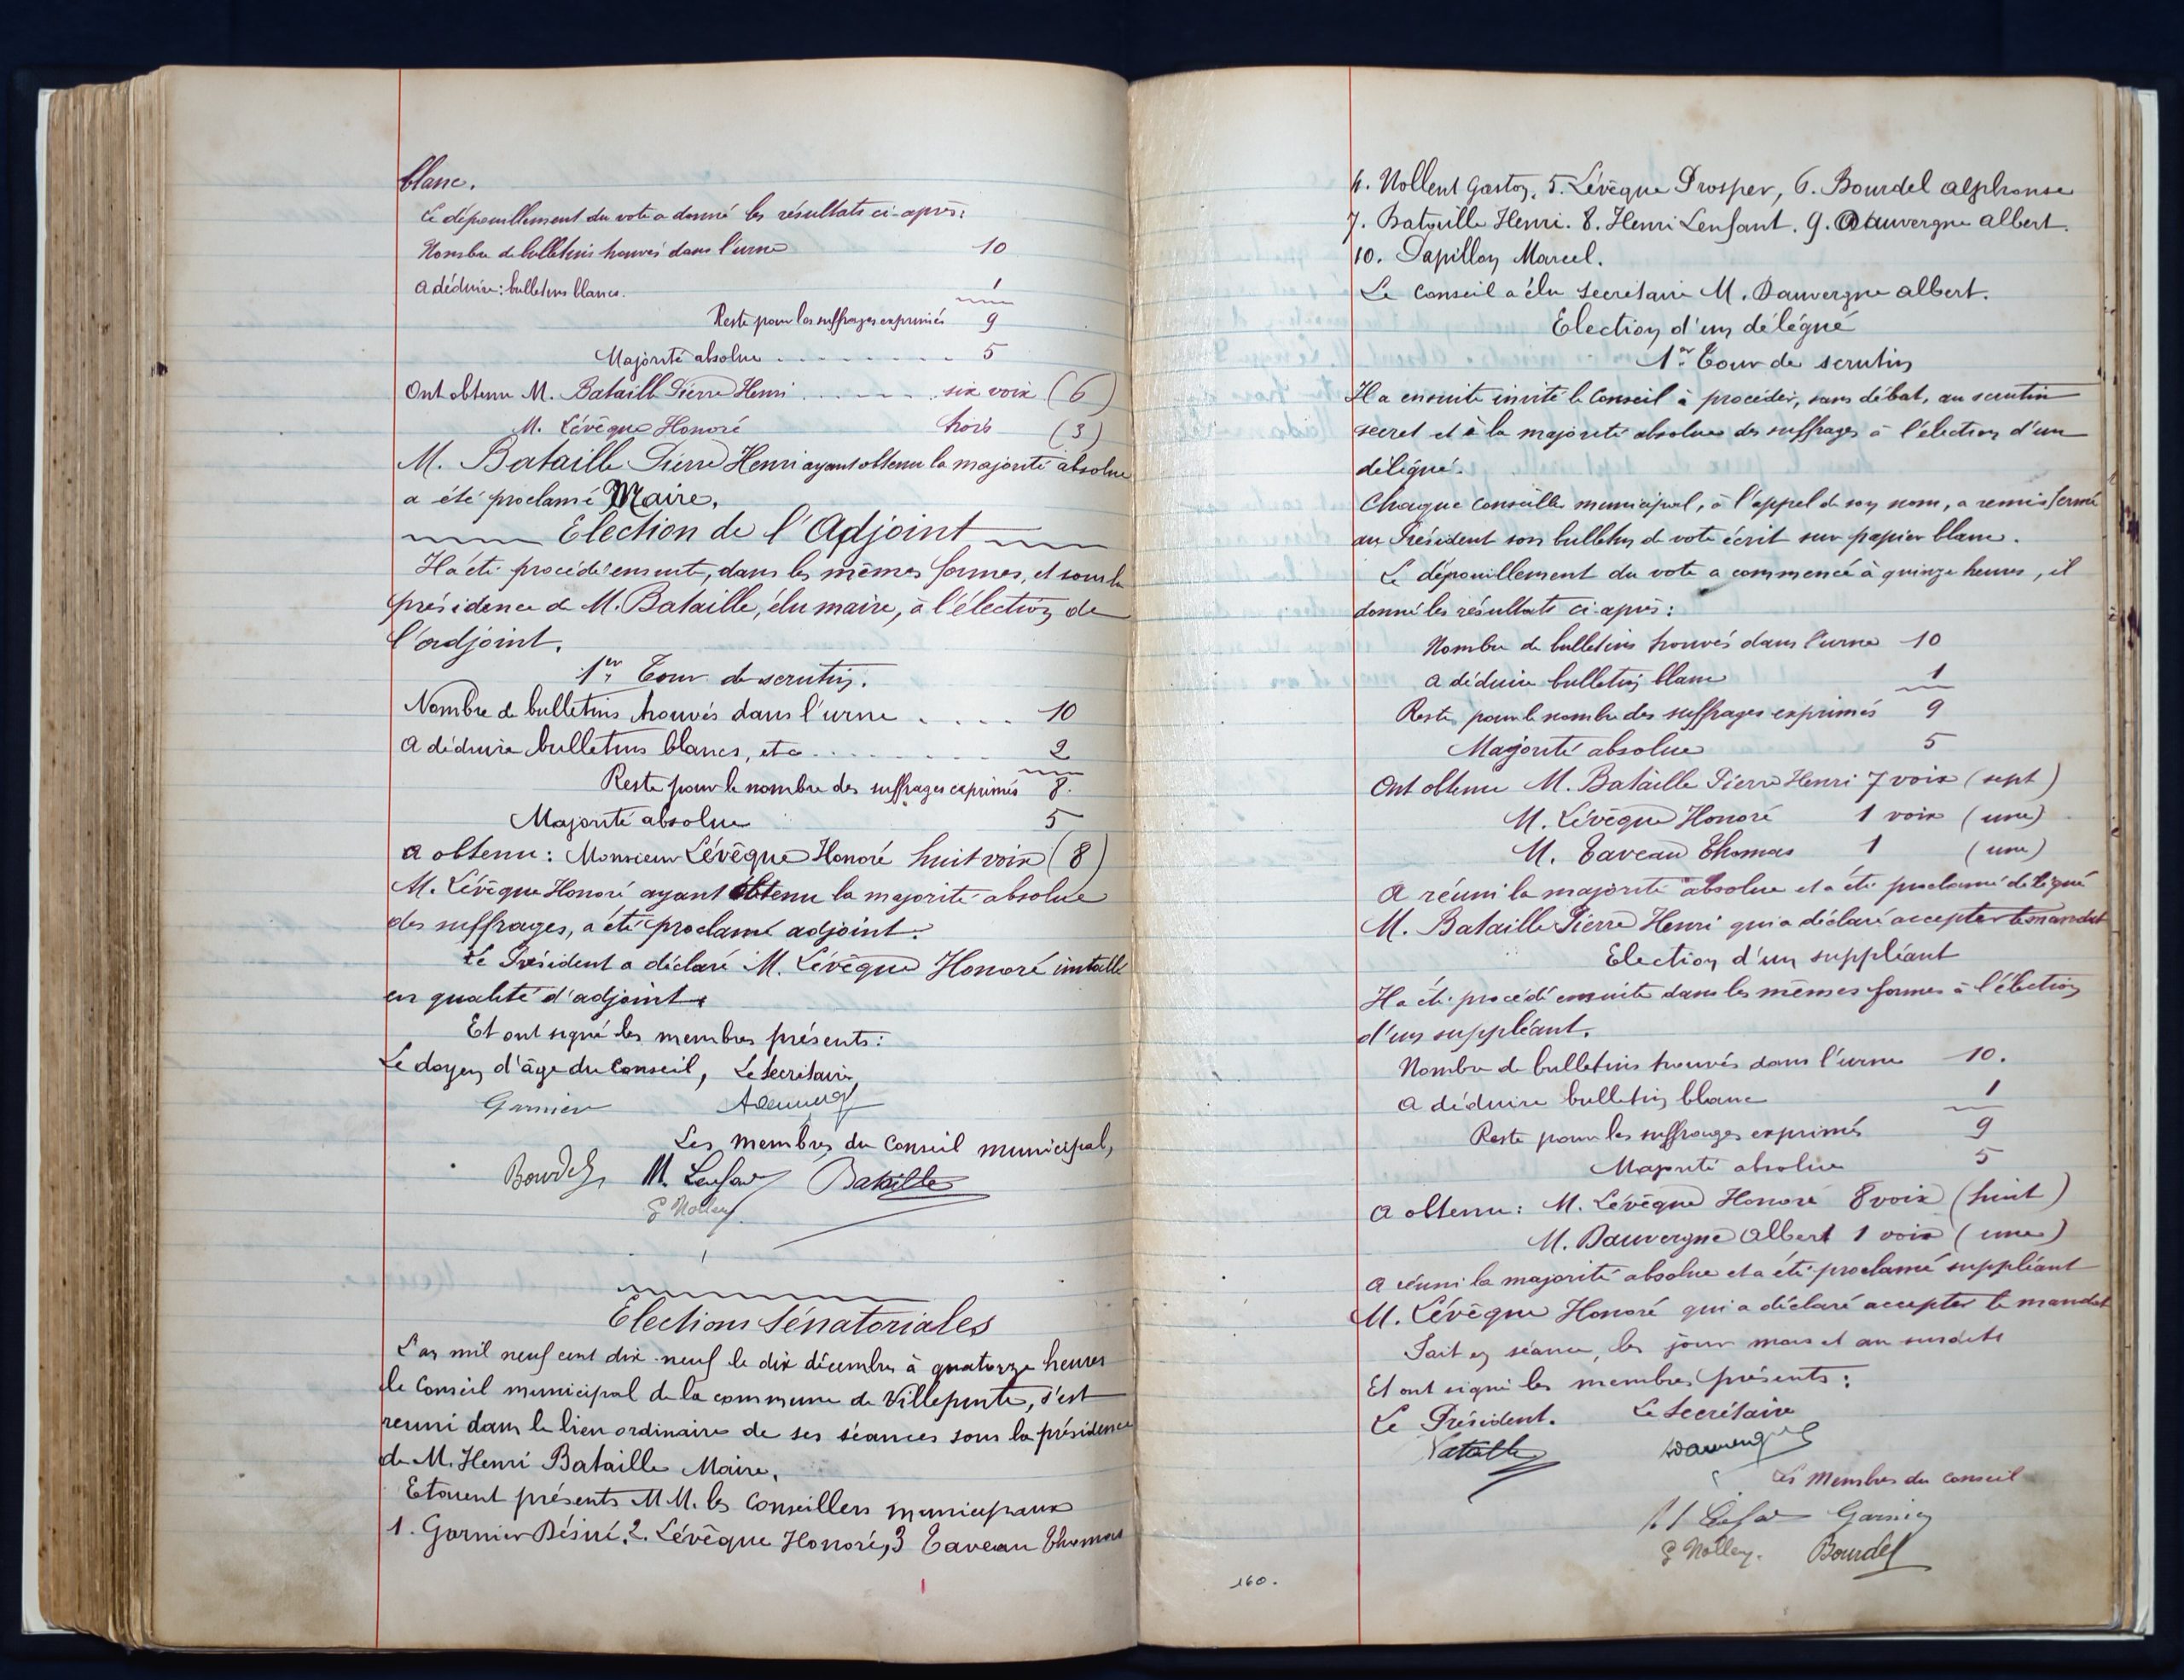 blanc.
Le dépouillement du vote a donné les résultats ci-après:
Nombre de bulletins trouvés dans l'urne 10
A déduire: bulletins blancs. 1
Reste pour les suffrages exprimés 9
Majorité absolue . . . . . . . 5
Ont obtenu M. Bataille Pierre Henri . . . . . . six voix (6)
M. Lévêque Honoré trois (3)
M. Bataille Pierre Henri ayant obtenu la majorité absolue
a été proclamé Maire.
Election de l'Adjoint
Il a été procédé ensuite, dans les mêmes formes, et sous la
présidence de M. Bataille, élu maire, à l'élection de
l'adjoint.
1er Tour de scrutin.
Nombre de bulletins trouvés dans l'urne . . . . 10
A déduire bulletins blancs, etc . . . . . . . 2
Reste pour le nombre des suffrages exprimés 8.
Majorité absolue 5
A obtenu: Monsieur Lévêque Honoré huit voix (8)
M. Lévêque Honoré ayant obtenu la majorité absolue
des suffrages, a été proclamé adjoint.
Le Président a déclaré M. Lévêque Honoré installé
en qualité d'adjoint.
Et ont signé les membres présents:
Le doyen d'âge du Conseil, Le Secrétaire,
Garnier
Les membres du Conseil municipal,
Bourdel M. Lenfant Bataille
G Nollent
Elections Sénatoriales
L'an mil neuf cent dix-neuf le dix décembre à quatorze heures
le Conseil municipal de la commune de Villepinte, s'est
reuni dans le lieu ordinaire de ses séances sous la présidence
de M. Henri Bataille Maire.
Etaient présents M M. les Conseillers municipaux
1. Garnier Désiré, 2. Lévêque Honoré, 3 Taveau Thomas
4. Nollent Gaston, 5. Lévêque Prosper, 6. Bourdel Alphonse
7. Bataille Henri. 8. Henri Lenfant. 9. Dauvergne Albert.
10. Papillon Marcel.
Le Conseil a élu secrétaire M. Dauvergne Albert.
Election d'un délégué
1er Tour de scrutin
Il a ensuite invité le Conseil à procéder, sans débat, au scrutin
secret et à la majorité absolue des suffrages à l'élection d'un
délégué.
Chaque Conseiller municipal, à l'appel de son nom, a remis fermé
au Président son bulletin de vote écrit sur papier blanc.
Le dépouillement du vote a commencé à quinze heures, il
donné les résultats ci-après:
Nombre de bulletins trouvés dans l'urne 10
A déduire bulletin blanc 1
Reste pour le nombre des suffrages exprimés 9
Majorité absolue 5
Ont obtenu M. Bataille Pierre Henri 7 voix (sept)
M. Lévêque Honoré 1 voix (une)
M. Taveau Thomas 1 (une)
A réuni la majorité absolue et a été proclamé délégué
M. Bataille Pierre Henri qui a déclaré accepter le mandat
Election d'un suppléant
Il a été procédé ensuite dans les mêmes formes à l'élection
d'un suppléant.
Nombre de bulletins trouvés dans l'urne 10.
A déduire bulletin blanc 1
Reste pour les suffrages exprimés 9
Majorité absolue 5
A obtenu: M. Lévêque Honoré 8 voix (huit)
M. Dauvergne Albert 1 voix (une)
A réuni la majorité absolue et a été proclamé suppléant
M. Lévêque Honoré qui a déclaré accepter le mandat
Fait en séance, les jour mois et an susdits
Et ont signé les membres présents:
Le Président. Le Secrétaire
Bataille Dauvergne
Les Membres du Conseil
Garnier
G Nollent. Bourdel
160.